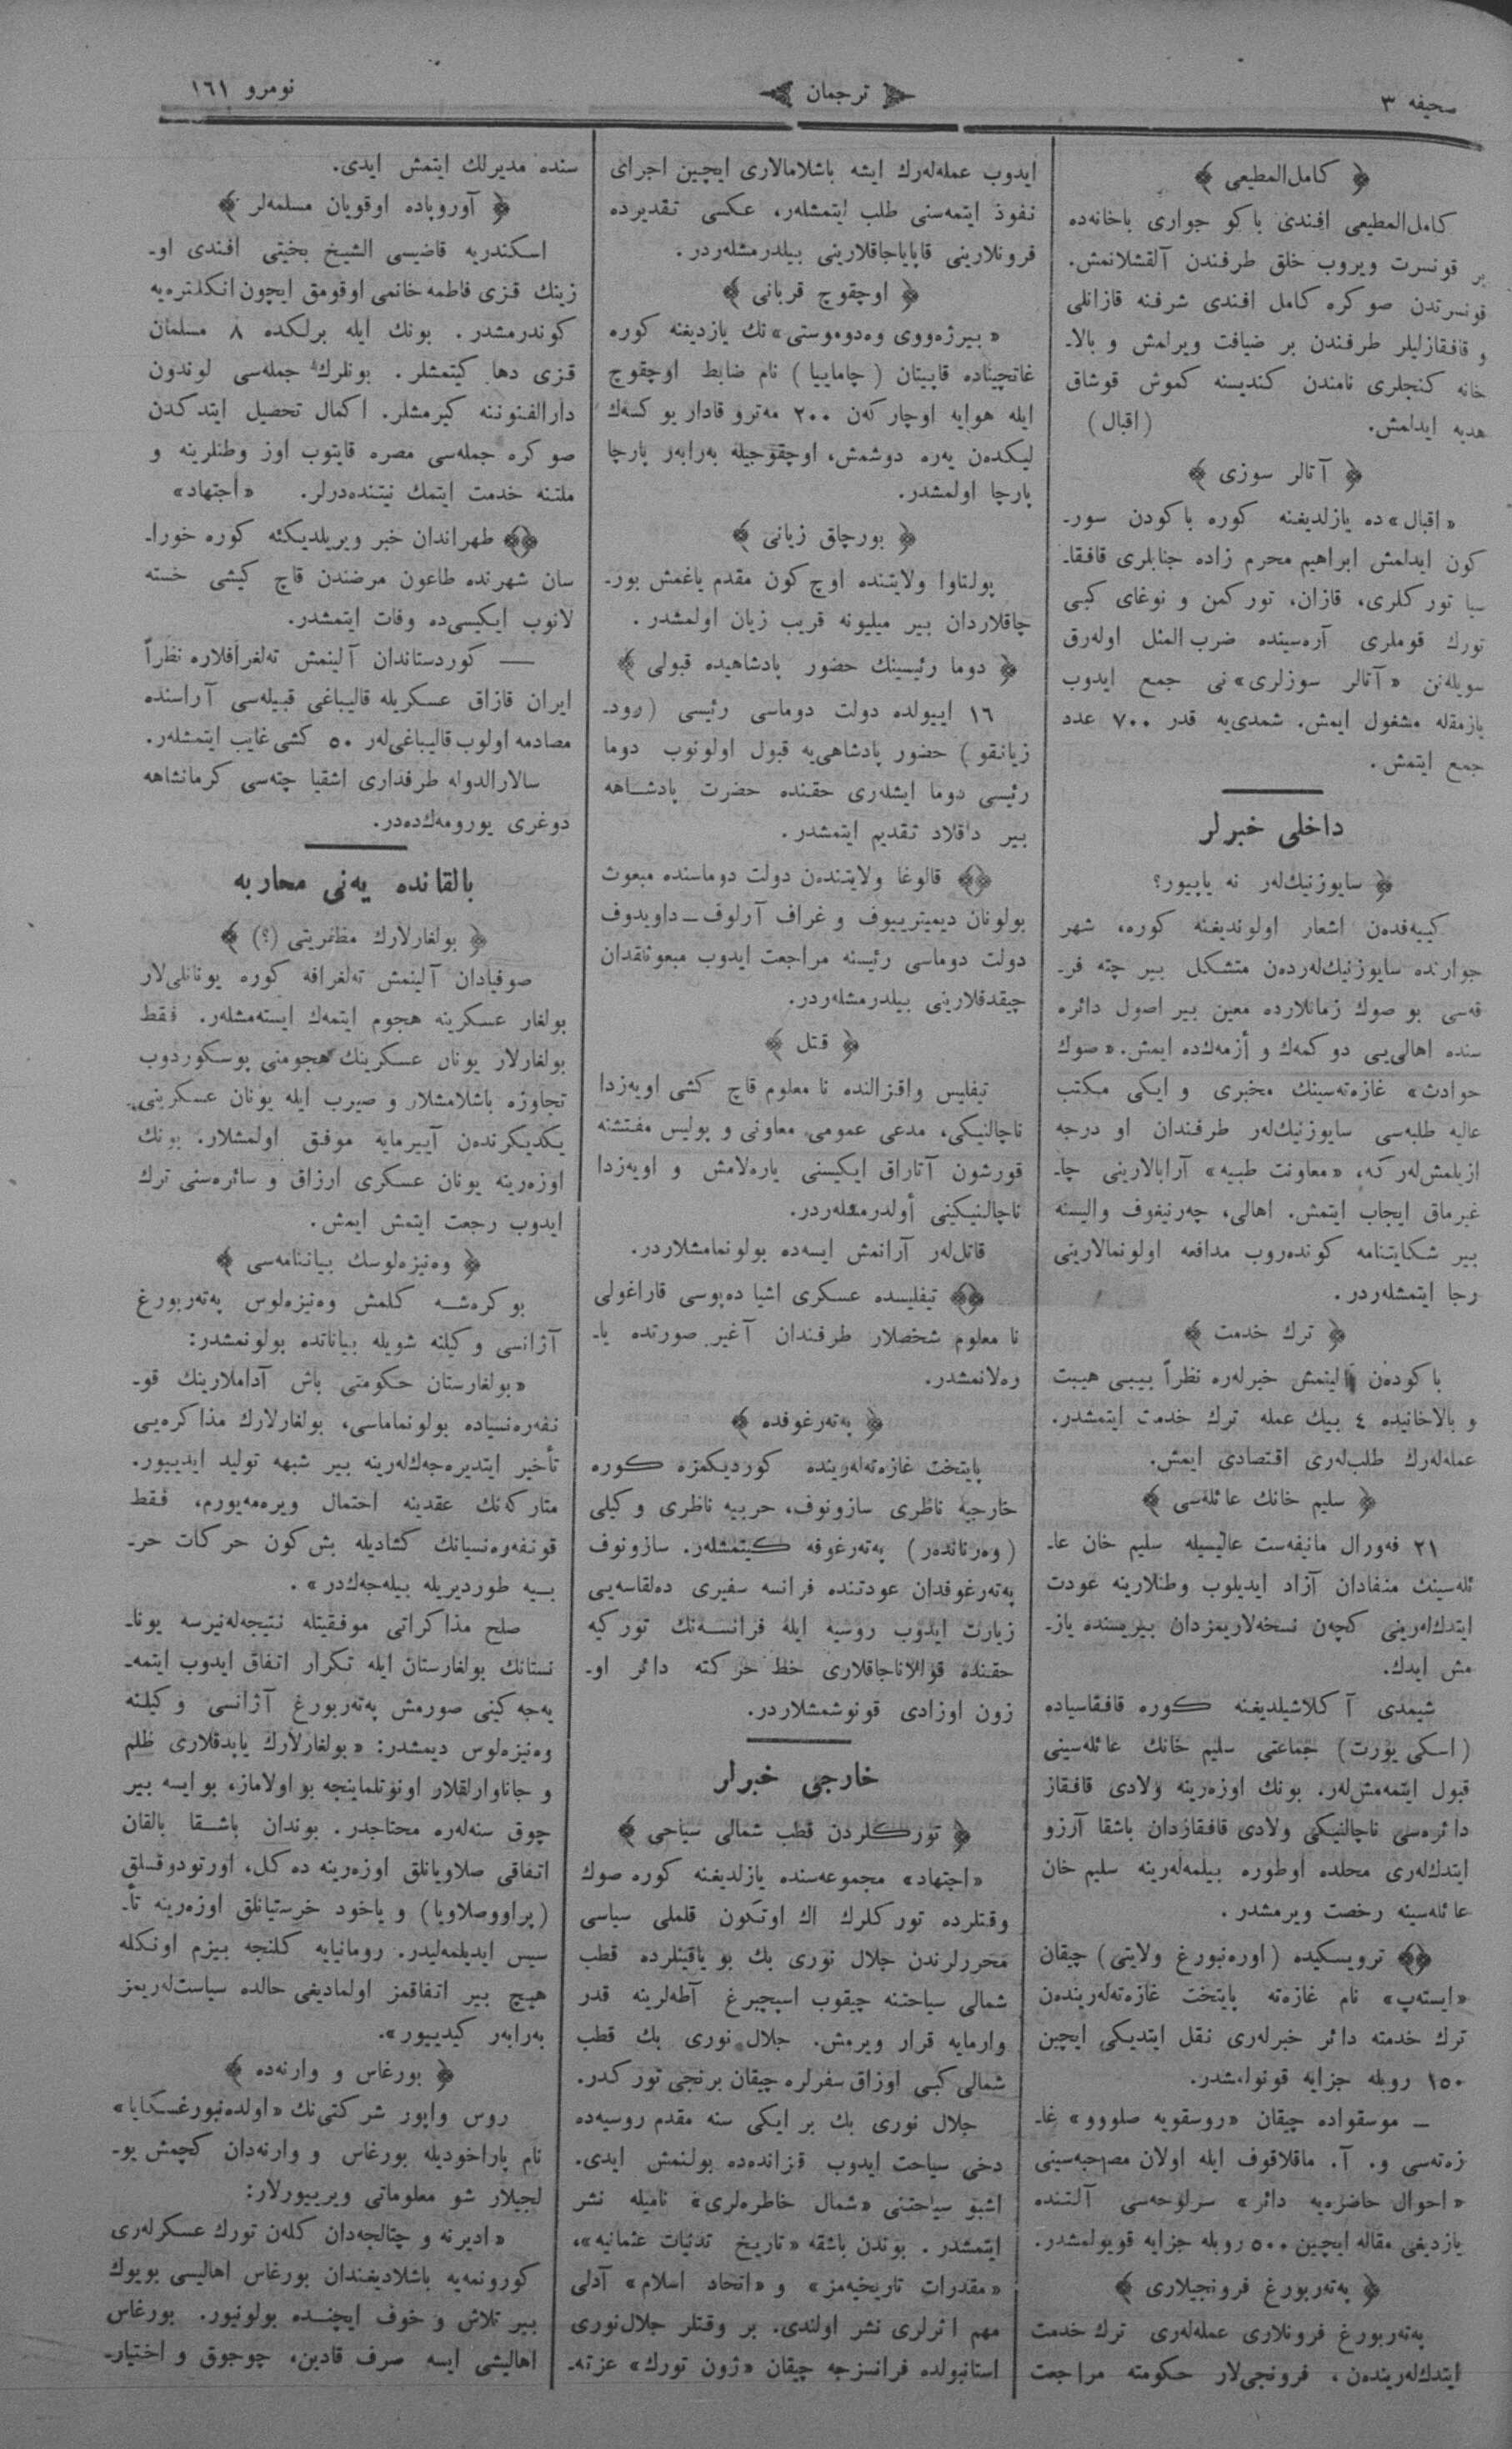 صحیفه ٣
ترجمان
نومرو ١٦١
﴿ كامل‌المطیعی ﴾
كامل‌المطیعی افندی باكو جواری باخانه‌ده
بر قونسرت ویروب خلق طرفندن آلقشلانمش.
قونسرتدن صوكره كامل افندی شرفنه قازانلی
و قافقازلیلر طرفندن بر ضیافت ویرلمش و بالا-
خانه كنجلری نامندن كندیسنه كموش قوشاق
هدیه ایدلمش. (اقبال)
﴿ آتالر سوزی ﴾
«اقبال»ده یازلدیغنه كوره باكودن سور-
كون ایدلمش ابراهیم محرم زاده جنابلری قافقا-
سیا توركلری، قازان، توركمن و نوغای كبی
تورك قوملری آره‌سینده ضرب المثل اوله‌رق
سویله‌نن «آتالر سوزلری»نی جمع ایدوب
یازمقله مشغول ایمش. شمدی‌یه قدر ٧٠٠ عدد
جمع ایتمش.
داخلی خبرلر
﴿ سایوزنیك‌لەر نه یاپیور؟
كییەفدەن اشعار اولوندیغنه كوره، شهر
جوارنده سایوزنیك‌لەردەن متشكل بیر چته فر-
قەسی بو صوك زمانلارده معین بیر اصول دائره
سنده اهالی‌یی دوكمەك و أزمەكده ایمش. «صوك
حوادث» غازەتەسینك مخبری و ایكی مكتب
عالیه طلبه‌سی سایوزنیك‌لەر طرفندان او درجه
ازیلمش‌لەر كه، «معاونت طبیه» آرابالارینی چا-
غیرماق ایجاب ایتمش. اهالی، چەرنیغوف والیسنه
بیر شكایتنامه كوندەروب مدافعه اولونمالارینی
رجا ایتمشلەردر.
﴿ ترك خدمت ﴾
باكودەن آلینمش خبرلەره نظراً بیبی هیبت
و بالاخانیده ٤ بیك عمله ترك خدمت ایتمشدر.
عمله‌لەرك طلب‌لەری اقتصادی ایمش.
﴿ سلیم خانك عائله‌سی ﴾
٢١ فەورال مانیفەست عالیسیله سلیم خان عا-
ئلەسینك منفادان آزاد ایدیلوب وطنلارینه عودت
ایتدك‌لەرینی كچەن نسخەلاریمزدان بیریسنده یاز-
مش ایدك.
شیمدی آكلاشیلدیغنه كوره قافقاسیاده
(اسكی یورت) جماعتی سلیم خانك عائلەسینی
قبول ایتمەمش‌لەر. بونك اوزەرینه ولادی قافقاز
دائرەسی ناچالنیكی ولادی قافقازدان باشقا آرزو
ایتدك‌لەری محلده اوطوره بیلمەلەرینه سلیم خان
عائلەسینه رخصت ویرمشدر.
ترویسكیده (اورەنبورغ ولایتی) چیقان
«ایستەپ» نام غازەته پایتخت غازەتەلەریندەن
ترك خدمته دائر خبرلەری نقل ایتدیكی ایچین
١٥٠ روبله جزایه قونولمشدر.
– موسقواده چیقان «روسقویه صلووو» غا-
زەتەسی و. آ. ماقلاقوف ایله اولان مصاحبەسینی
«احوال حاضرەیه دائر» سرلوحەسی آلتنده
یازدیغی مقاله ایچین ٥٠٠ روبله جزایه قویولمشدر.
﴿ پەتەربورغ فرونجیلاری ﴾
پەتەربورغ فرونلاری عمله‌لەری ترك خدمت
ایتدك‌لەریندەن، فرونجی‌لار حكومته مراجعت
ایدوب عمله‌لەرك ایشه باشلامالاری ایچین اجرای
نفوذ ایتمەسنی طلب ایتمشلەر، عكسی تقدیرده
فرونلارینی قاپایاجاقلارینی بیلدرمشلەردر.
﴿ اوچقوچ قربانی ﴾
«بیرژەووی وەدوموستی»نك یازدیغنه كوره
غاتچیناده قاپیتان (چامایبا) نام ضابط اوچقوچ
ایله هوایه اوچاركەن ٢٠٠ مەترو قادار یوكسەك
لیكدەن یەره دوشمش، اوچقوجیله بەرابەر پارچا
پارچا اولمشدر.
﴿ بورچاق زیانی ﴾
پولتاوا ولایتنده اوچ كون مقدم یاغمش بور-
چاقلاردان بیر میلیونه قریب زیان اولمشدر.
﴿ دوما رئیسینك حضور پادشاهیده قبولی ﴾
١٦ اییولده دولت دوماسی رئیسی (رود-
زیانقو) حضور پادشاهی‌یه قبول اولونوب دوما
رئیسی دوما ایشلەری حقنده حضرت پادشاهه
بیر داقلاد تقدیم ایتمشدر.
قالوغا ولایتندەن دولت دوماسنده مبعوث
بولونان دیمیترییوف و غراف آرلوف–داویدوف
دولت دوماسی رئیسنه مراجعت ایدوب مبعوثلقدان
چیقدقلارینی بیلدرمشلەردر.
﴿ قتل ﴾
تیفلیس واقزالنده نا معلوم قاچ كشی اویەزدا
ناچالنیكی، مدعی عمومی معاونی و پولیس مفتشنه
قورشون آتاراق ایكیسنی یارەلامش و اویەزدا
ناچالنیكینی أولدرمشلەردر.
قاتل‌لەر آرانمش ایسەده بولونمامشلاردر.
تیفلیسده عسكری اشیا دەپوسی قاراغولی
نا معلوم شخصلار طرفندان آغیر صورتده یا-
رەلانمشدر.
﴿ پەتەرغوفده ﴾
پایتخت غازەتەلەرینده كوردیكمزه كوره
خارجیه ناظری سازونوف، حربیه ناظری وكیلی
(وەرناندەر) پەتەرغوفه كیتمشلەر. سازونوف
پەتەرغوفدان عودتنده فرانسه سفیری دەلقاسەیی
زیارت ایدوب روسیه ایله فرانسەنك توركیه
حقنده قوللاناجاقلاری خط حركته دائر او-
زون اوزادی قونوشمشلاردر.
خارجی خبرلر
﴿ توركلردن قطب شمالی سیاحی ﴾
«اجتهاد» مجموعه‌سنده یازلدیغنه كوره صوك
وقتلرده توركلرك اك اوتكون قلملی سیاسی
محررلرندن جلال نوری بك بو یاقینلرده قطب
شمالی سیاحتنه چیقوب اسپیچبرغ آطه‌لرینه قدر
وارمایه قرار ویرمش. جلال نوری بك قطب
شمالی كبی اوزاق سفرلره چیقان برنجی توركدر.
جلال نوری بك بر ایكی سنه مقدم روسیه‌ده
دخی سیاحت ایدوب قزانده‌ده بولنمش ایدی.
اشبو سیاحتنی «شمال خاطره‌لری» نامیله نشر
ایتمشدر. بوندن باشقه «تاریخ تدنیات عثمانیه»،
«مقدرات تاریخیه‌مز» و «اتحاد اسلام» آدلی
مهم اثرلری نشر اولندی. بر وقتلر جلال نوری
استانبولده فرانسزجه چیقان «ژون تورك» غزته-
سنده مدیرلك ایتمش ایدی.
﴿ آوروپاده اوقویان مسلمه‌لر ﴾
اسكندریه قاضیسی الشیخ بخیتی افندی او-
زینك قزی فاطمه خانمی اوقومق ایچون انكلتره‌یه
كوندرمشدر. بونك ایله برلكده ٨ مسلمان
قزی دها كیتمشلر. بونلرك جمله‌سی لوندون
دارالفنوننه كیرمشلر. اكمال تحصیل ایتدكدن
صوكره جمله‌سی مصره قایتوب اوز وطنلرینه و
ملتنه خدمت ایتمك نیتنده‌درلر. «اجتهاد»
طهراندان خبر ویریلدیكنه كوره خورا-
سان شهرنده طاعون مرضندن قاچ كیشی خسته
لانوب ایكیسی‌ده وفات ایتمشدر.
— كوردستاندان آلینمش تەلغرافلاره نظراً
ایران قازاق عسكریله قالیباغی قبیله‌سی آراسنده
مصادمه اولوب قالیباغی‌لەر ٥٠ كشی غایب ایتمشلەر.
سالارالدوله طرفداری اشقیا چتەسی كرمانشاهه
دوغری یورومەكدەدر.
بالقانده یەنی محاربه
﴿ بولغارلارك مظفریتی (؟) ﴾
صوفیادان آلینمش تەلغرافه كوره یونانلی‌لار
بولغار عسكرینه هجوم ایتمەك ایستەمشلەر. فقط
بولغارلار یونان عسكرینك هجومنی پوسكوردوب
تجاوزه باشلامشلار و صیرب ایله یونان عسكرینی
یكدیكرندەن آییرمایه موفق اولمشلار. بونك
اوزەرینه یونان عسكری ارزاق و سائرەسنی ترك
ایدوب رجعت ایتمش ایمش.
﴿ وەنیزەلوسك بیاننامەسی ﴾
بوكرەشه كلمش وەنیزەلوس پەتەربورغ
آژانسی وكیلنه شویله بیاناتده بولونمشدر:
«بولغارستان حكومتی باش آداملارینك قو-
نفەرەنسیاده بولونماماسی، بولغارلارك مذاكرەیی
تأخیر ایتدیرەجەك‌لەرینه بیر شبهه تولید ایدییور.
متاركەنك عقدینه احتمال ویرەمەیورم، فقط
قونفەرەنسیانك كشادیله بش كون حركات حر-
بییه طوردیریله بیلەجەكدر».
صلح مذاكراتی موفقیتله نتیجەلەنیرسه یونا-
نستانك بولغارستان ایله تكرار اتفاق ایدوب ایتمە-
یەجەكینی صورمش پەتەربورغ آژانسی وكیلنه
وەنیزەلوس دیمشدر: «بولغارلارك یاپدقلاری ظلم
و جاناوارلقلار اونوتلماینجه بو اولاماز، بو ایسه بیر
چوق سنەلەره محتاجدر. بوندان باشقا بالقان
اتفاقی صلاویانلق اوزەرینه دەكل، اورتودوقسلق
(پراووصلاویا) و یاخود خرستیانلق اوزەرینه تأ-
سیس ایدیلمەلیدر. رومانیایه كلنجه بیزم اونكله
هیچ بیر اتفاقمز اولمادیغی حالده سیاست‌لەریمز
بەرابەر كیدییور».
﴿ بورغاس و وارنەده ﴾
روس واپور شركتی‌نك «اولدەنبورغسكایا»
نام پاراخودیله بورغاس و وارنەدان كچمش یو-
لجیلار شو معلوماتی ویرییورلار:
«ادیرنه و چتالجەدان كلەن تورك عسكرلەری
كورونمەیه باشلادیغندان بورغاس اهالیسی بویوك
بیر تلاش و خوف ایچنده بولونیور. بورغاس
اهالیسی ایسه صرف قادین، چوجوق و اختیار-